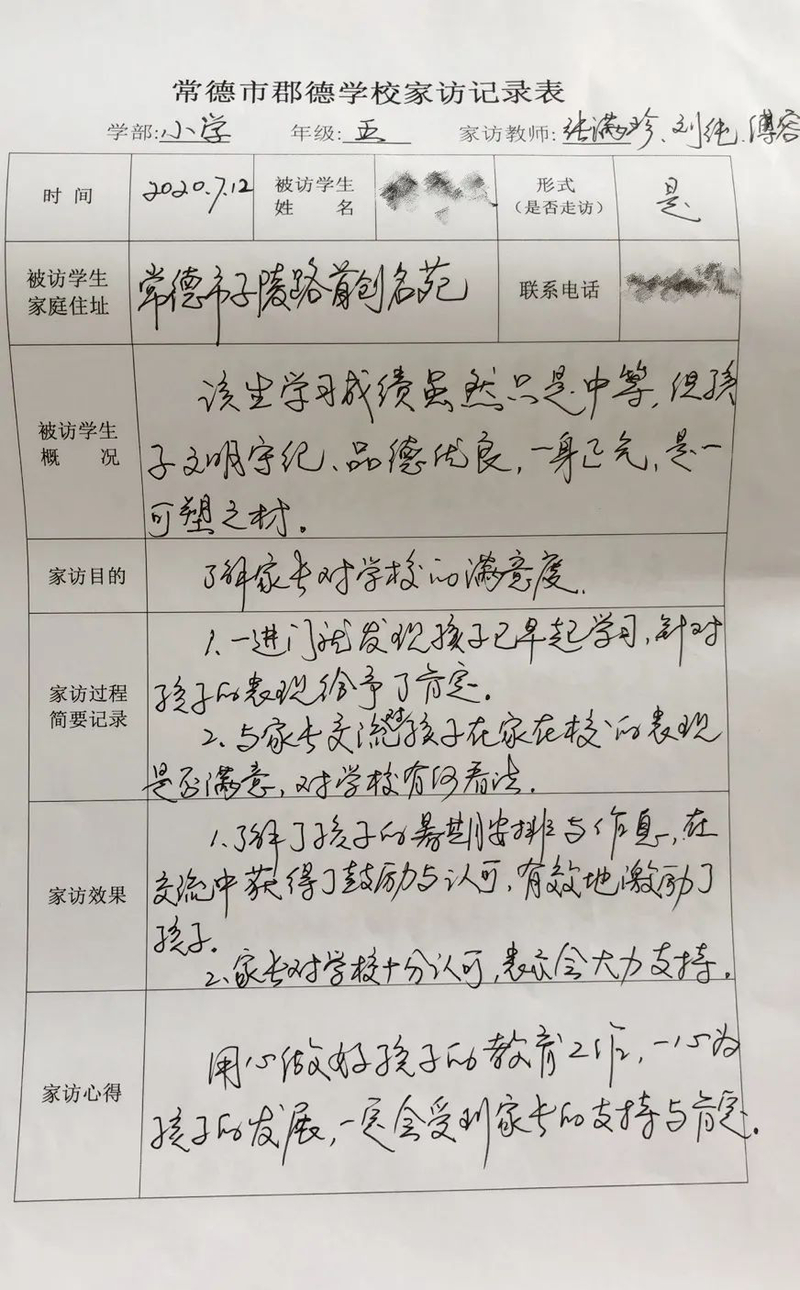 常德市郡德学校家访记录表
学部:小学 年级:五 家访教师:张满珍、刘纯、傅容
时 间 2020.7.12 被访学生姓 名 形式(是否走访) 是
被访学生家庭住址 常德市子陵路首创名苑 联系电话
被访学生概 况
该生学习成绩虽然只是中等,但孩
子文明守纪、品德优良,一身正气,是一
可塑之材。
家访目的 了解家长对学校的满意度.
家访过程简要记录
1.一进门就发现孩子已早起学习,针对
孩子的表现给予了肯定.
2.与家长交流孩子在家在校的表现
是否满意,对学校有何看法.
家访效果
1.了解了孩子的暑期安排与作息,在
交流中获得了鼓励与认可,有效地激励了
孩子.
2.家长对学校十分认可,表示会大力支持.
家访心得
用心做好孩子的教育工作,一心为
孩子的发展,一定会受到家长的支持与肯定.